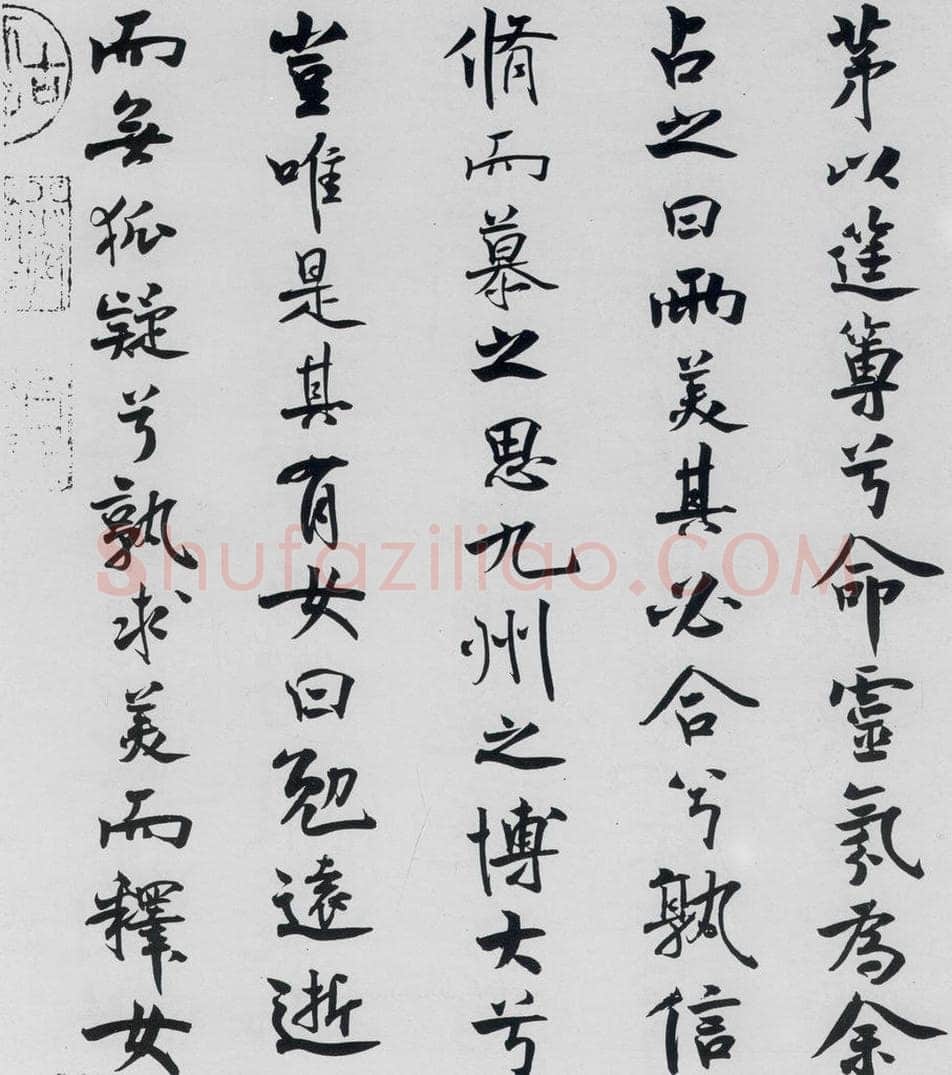 茅以筳篿兮命靈氛為余
占之曰兩美其必合兮孰信
脩而慕之思九州之博大兮
豈唯是其有女曰勉遠逝
而無狐疑兮孰求美而釋女
Shufaziliao.COM